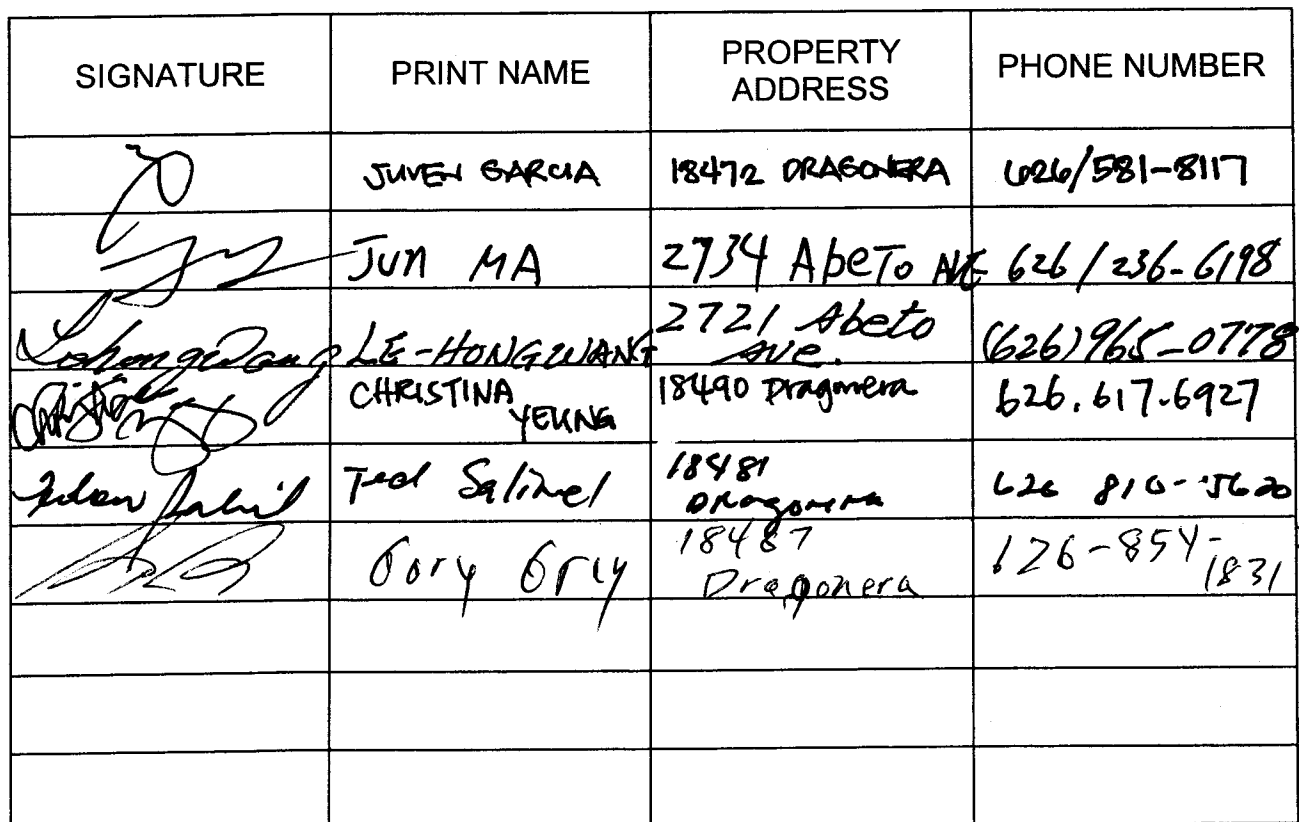 SIGNATURE PRINT NAME PROPERTY ADDRESS PHONE NUMBER
JUVEN GARCIA 18472 DRAGONERA 626/581-8117
JUN MA 2734 AbeTo AVE 626/236-6198
Lehongwang LE-HONG WANG 2721 Abeto Ave. (626)965-0778
CHRISTINA YEUNG 18490 Dragonera 626.617.6927
Ted 18481 DRagonera 626 810-5620
Gory 18487 Dragonera 626-854-1831